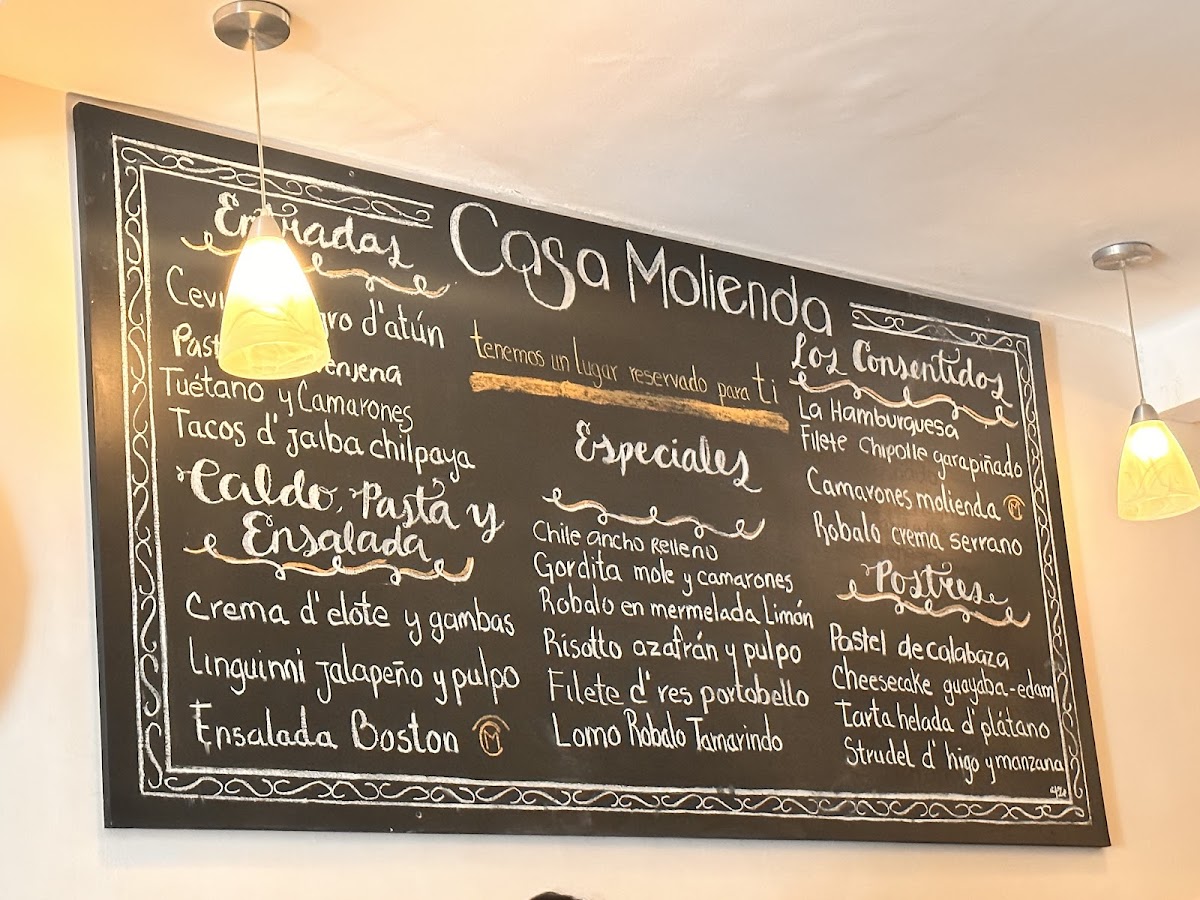 Casa Molienda
tenemos un lugar reservado para ti
Entradas
d'atún
Tuétano y Camarones
Tacos d' jaiba chilpaya
Caldo, Pasta y
Ensalada
Crema d' elote y gambas
Linguinni jalapeño y pulpo
Ensalada Boston M
Especiales
Chile ancho Relleno
Gordita mole y camarones
Robalo en mermelada Limón
Risotto azafrán y pulpo
Filete d' res portobello
Lomo Robalo Tamarindo
Los Consentidos
La Hamburguesa
Filete Chipotle garapiñado
Camarones molienda M
Robalo crema serrano
Postres
Pastel de calabaza
Cheesecake guayaba-edam
Tarta helada d' plátano
Strudel d' higo y manzana